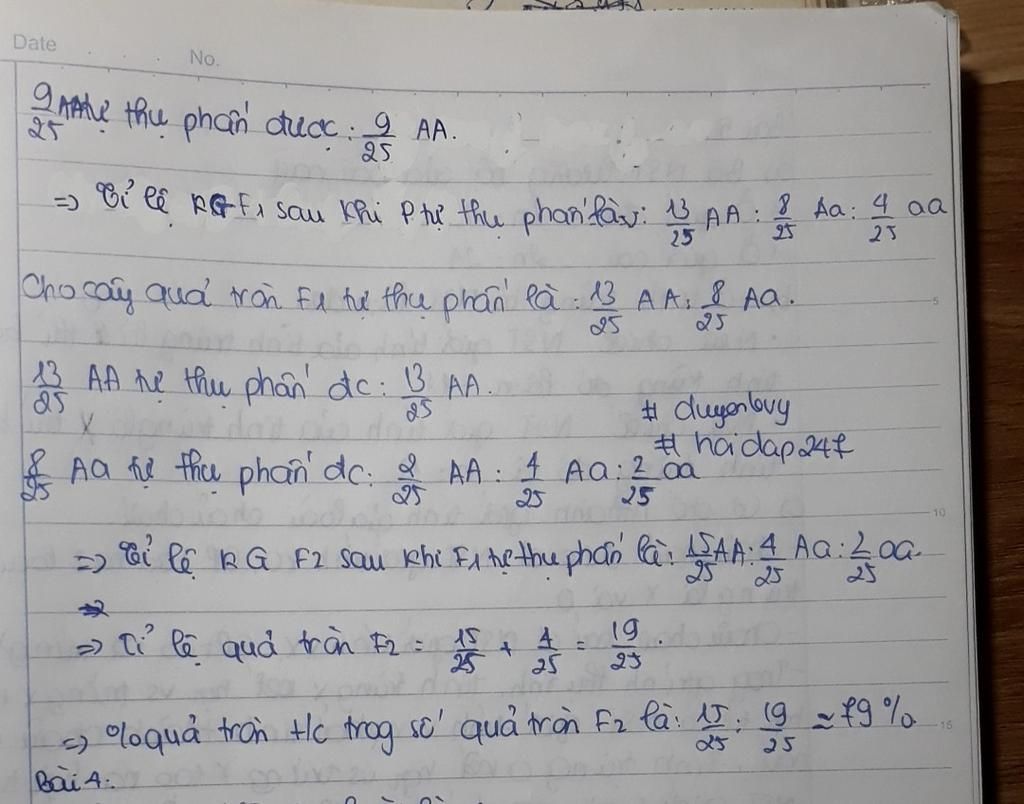 Date
No.
9/25 AA tự thụ phấn được: 9/25 AA.
=> Tỉ lệ KG F1 sau khi P tự thụ phấn là: 13/25 AA : 8/25 Aa : 4/25 aa
Cho cây quả tròn F1 tự thụ phấn là: 13/25 AA : 8/25 Aa.
5
13/25 AA tự thụ phấn đc: 13/25 AA.
# duyenlovy
# hoidap247
8/25 Aa tự thụ phấn đc: 2/25 AA : 4/25 Aa : 2/25 aa
10
=> Tỉ lệ KG F2 sau khi F1 tự thụ phấn là: 15/25 AA : 4/25 Aa : 2/25 aa.
=> Tỉ lệ quả tròn F2 = 15/25 + 4/25 = 19/25.
=> % quả tròn t/c trog số quả tròn F2 là: 15/25 : 19/25 ≈ 79%
15
Bài 4: